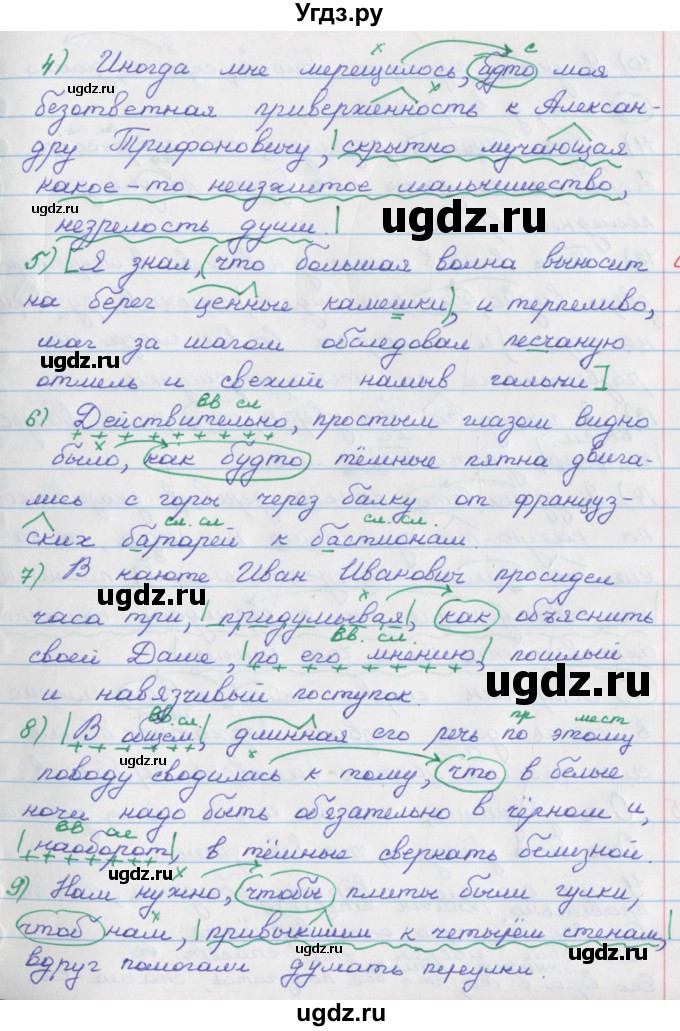 Угдз.ру
х с
4) Иногда мне мерещилось, будто моя
безответная приверженность к Алексан-
дру Трифоновичу, скрытно мучающая
какое-то неизжитое мальчишество,
незрелость души.
5) [Я знал, (что большая волна выносит
на берег ценные камешки), и терпеливо,
шаг за шагом обследовал песчаную
отмель и свежий намыв гальки]
вв сл
6) Действительно, простым глазом видно
было, как будто тёмные пятна двига-
лись с горы через балку от француз-
сл. сл сл. сл.
ских батарей к бастионам.
7) В каюте Иван Иванович просидел
часа три, |придумывая|, как объяснить
вв. сл.
своей Даше, |по его мнению,| пошлый
и навязчивый поступок.
вв. сл. пр мест
8) |В общем|, длинная его речь по этому
поводу сводилась к тому, что в белые
ночи надо быть обязательно в чёрном и,
вв сл
|наоборот|, в тёмные сверкать белизной.
9) Нам нужно, чтобы плиты были гулки,
чтоб нам, |привыкшим к четырём стенам,|
вдруг помогали думать переулки.
gdz.ru
ugdz.ru
gdz.ru
ugdz.ru
ugdz.ru
gdz.ru
ugdz.ru
gdz.ru
ugdz.ru
gdz.ru
ugdz.ru
gdz.ru
ugdz.ru
gdz.ru
ugdz.ru